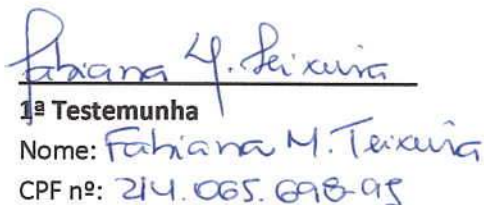 Fabiana M. Teixeira
1ª Testemunha
Nome: Fabiana M. Teixeira
CPF nº: 214.065.698-95